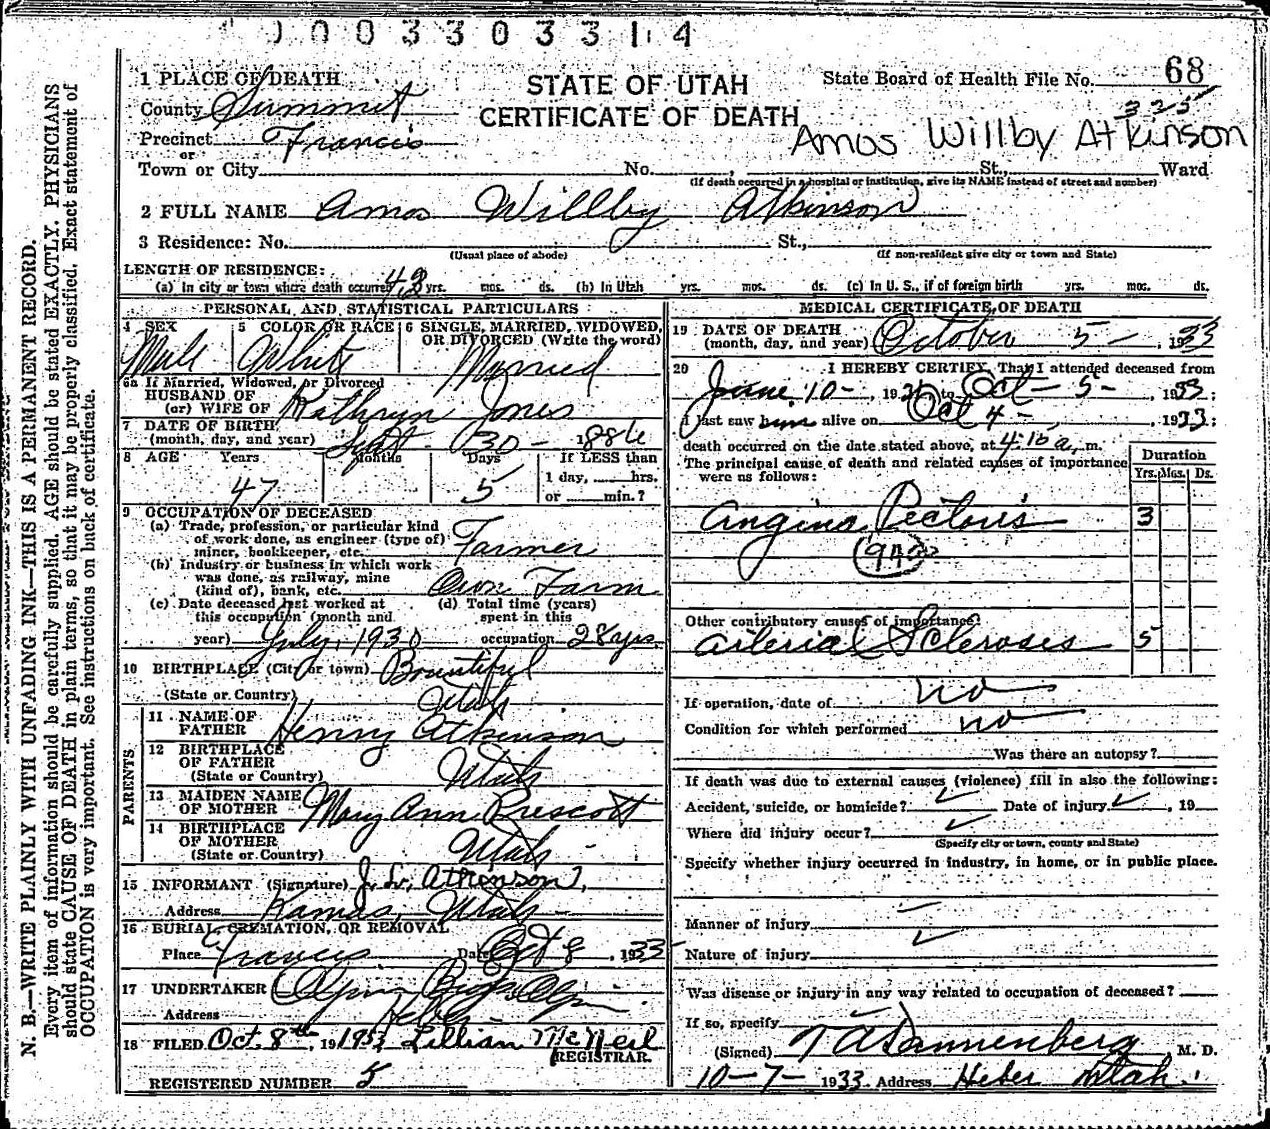 0 0 0 3 3 0 3 3 1 4
1 PLACE OF DEATH
STATE OF UTAH
CERTIFICATE OF DEATH
State Board of Health File No. 68
325
County Summit
Precinct Francis
or
Amos Willby Atkinson
Town or City No. , St., Ward
(If death occurred in a hospital or institution, give its NAME instead of street and number)
2 FULL NAME Amos Willby Atkinson
3 Residence: No. St.,
(Usual place of abode) (If non-resident give city or town and State)
LENGTH OF RESIDENCE:
(a) In city or town where death occurred 43 yrs. mos. ds. (b) In Utah yrs. mos. ds. (c) In U. S., if of foreign birth yrs. mos. ds.
PERSONAL AND STATISTICAL PARTICULARS
4 SEX Male
5 COLOR OR RACE White
6 SINGLE, MARRIED, WIDOWED, OR DIVORCED (Write the word) Married
6a If Married, Widowed, or Divorced
HUSBAND OF
(or) WIFE OF Kathryn Jones
7 DATE OF BIRTH
(month, day, and year) Sept 30 - 1886
8 AGE Years Months Days If LESS than
47 5 1 day, hrs.
or min.?
9 OCCUPATION OF DECEASED
(a) Trade, profession, or particular kind
of work done, as engineer (type of)
miner, bookkeeper, etc. Farmer
(b) Industry or business in which work
was done, as railway, mine
(kind of), bank, etc. Own Farm
(c) Date deceased last worked at
this occupation (month and
year) July, 1930
(d) Total time (years)
spent in this
occupation 28 yrs.
10 BIRTHPLACE (City or town) Bountiful
(State or Country) Utah
PARENTS
11 NAME OF
FATHER Henry Atkinson
12 BIRTHPLACE
OF FATHER
(State or Country) Utah
13 MAIDEN NAME
OF MOTHER Mary Ann Prescott
14 BIRTHPLACE
OF MOTHER
(State or Country) Utah
15 INFORMANT (Signature) Atkinson
Address Kamas, Utah
16 BURIAL, CREMATION, OR REMOVAL
Place Francis Date Oct 8, 1933
17 UNDERTAKER
Address Heber
18 FILED Oct. 8th, 19 1933 Lillian McNeil
REGISTRAR.
REGISTERED NUMBER 5
MEDICAL CERTIFICATE OF DEATH
19 DATE OF DEATH
(month, day, and year) October 5 - , 1933
20 I HEREBY CERTIFY, That I attended deceased from
June 10 - , 19 to Oct - 5 - , 1933;
I last saw him alive on Oct 4 - , 1933;
death occurred on the date stated above, at 4:10 a. m.
The principal cause of death and related causes of importance
were as follows:
Duration
Yrs. Mos. Ds.
Angina Pectoris 3
Other contributory causes of importance:
Arterial Sclerosis 5
If operation, date of no
Condition for which performed no
Was there an autopsy?
If death was due to external causes (violence) fill in also the following:
Accident, suicide, or homicide? Date of injury , 19
Where did injury occur?
(Specify city or town, county and State)
Specify whether injury occurred in industry, in home, or in public place.
Manner of injury
Nature of injury
Was disease or injury in any way related to occupation of deceased?
If so, specify
(Signed) T A Dannenberg M. D.
10 - 7 - 1933 Address Heber Utah.
N. B.—WRITE PLAINLY WITH UNFADING INK—THIS IS A PERMANENT RECORD.
Every item of information should be carefully supplied. AGE should be stated EXACTLY. PHYSICIANS
should state CAUSE OF DEATH in plain terms, so that it may be properly classified. Exact statement of
OCCUPATION is very important. See instructions on back of certificate.